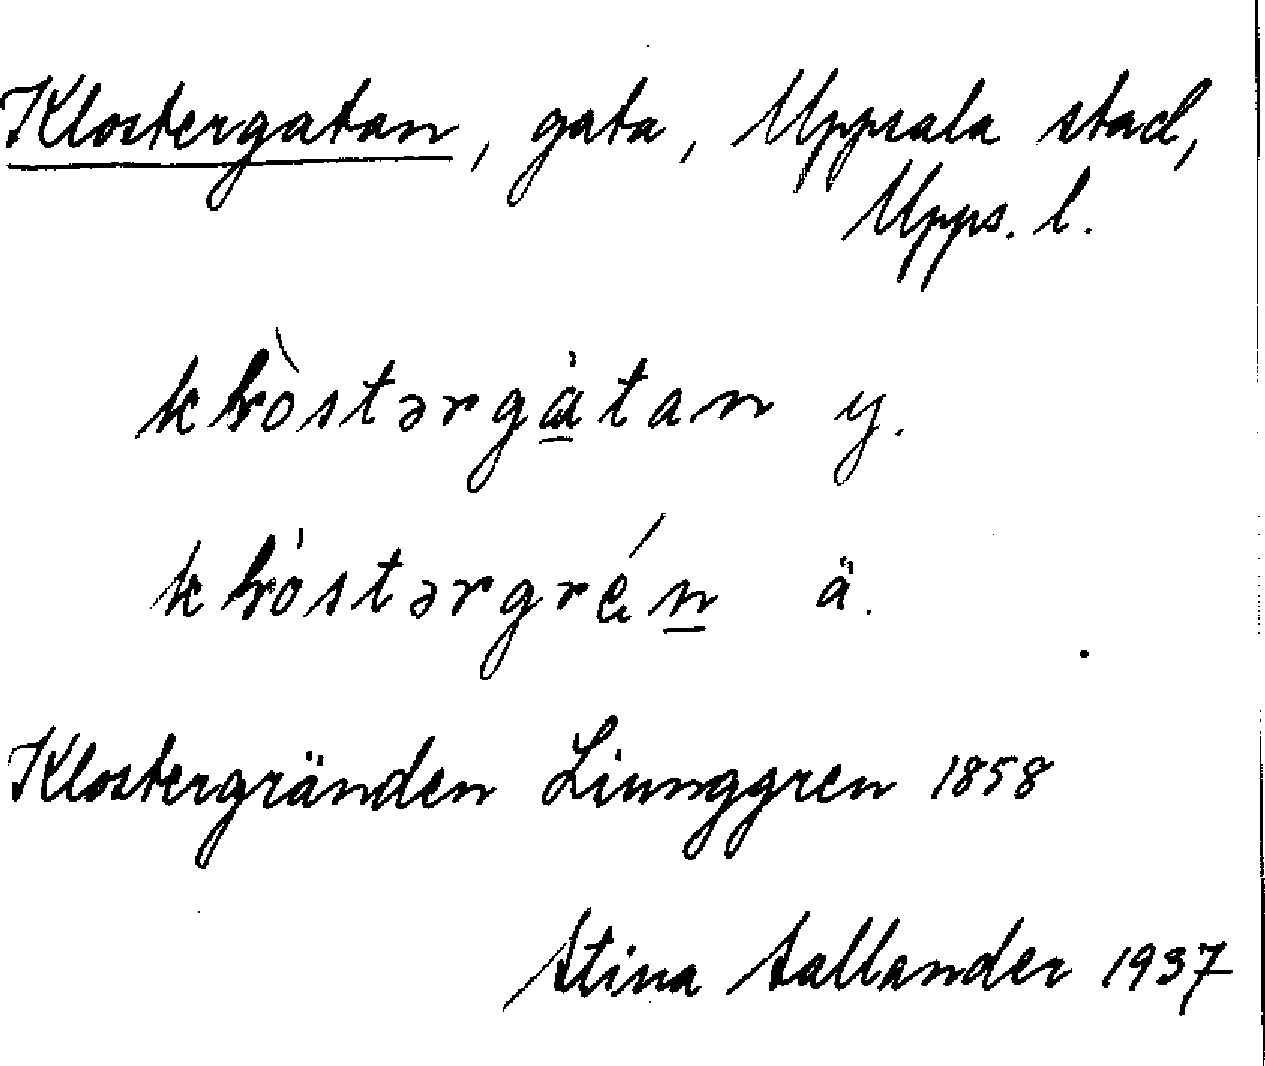 Klostergatan, gata, Uppsala stad,
Upps. l.
klòstərgàtan y.
klòstərgrén ä.
Klostergränden Liunggren 1858
Stina Sallander 1937